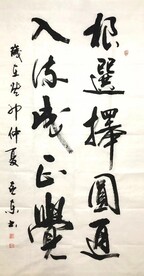 根選擇圓通
入流成正覺
歲在癸卯仲夏